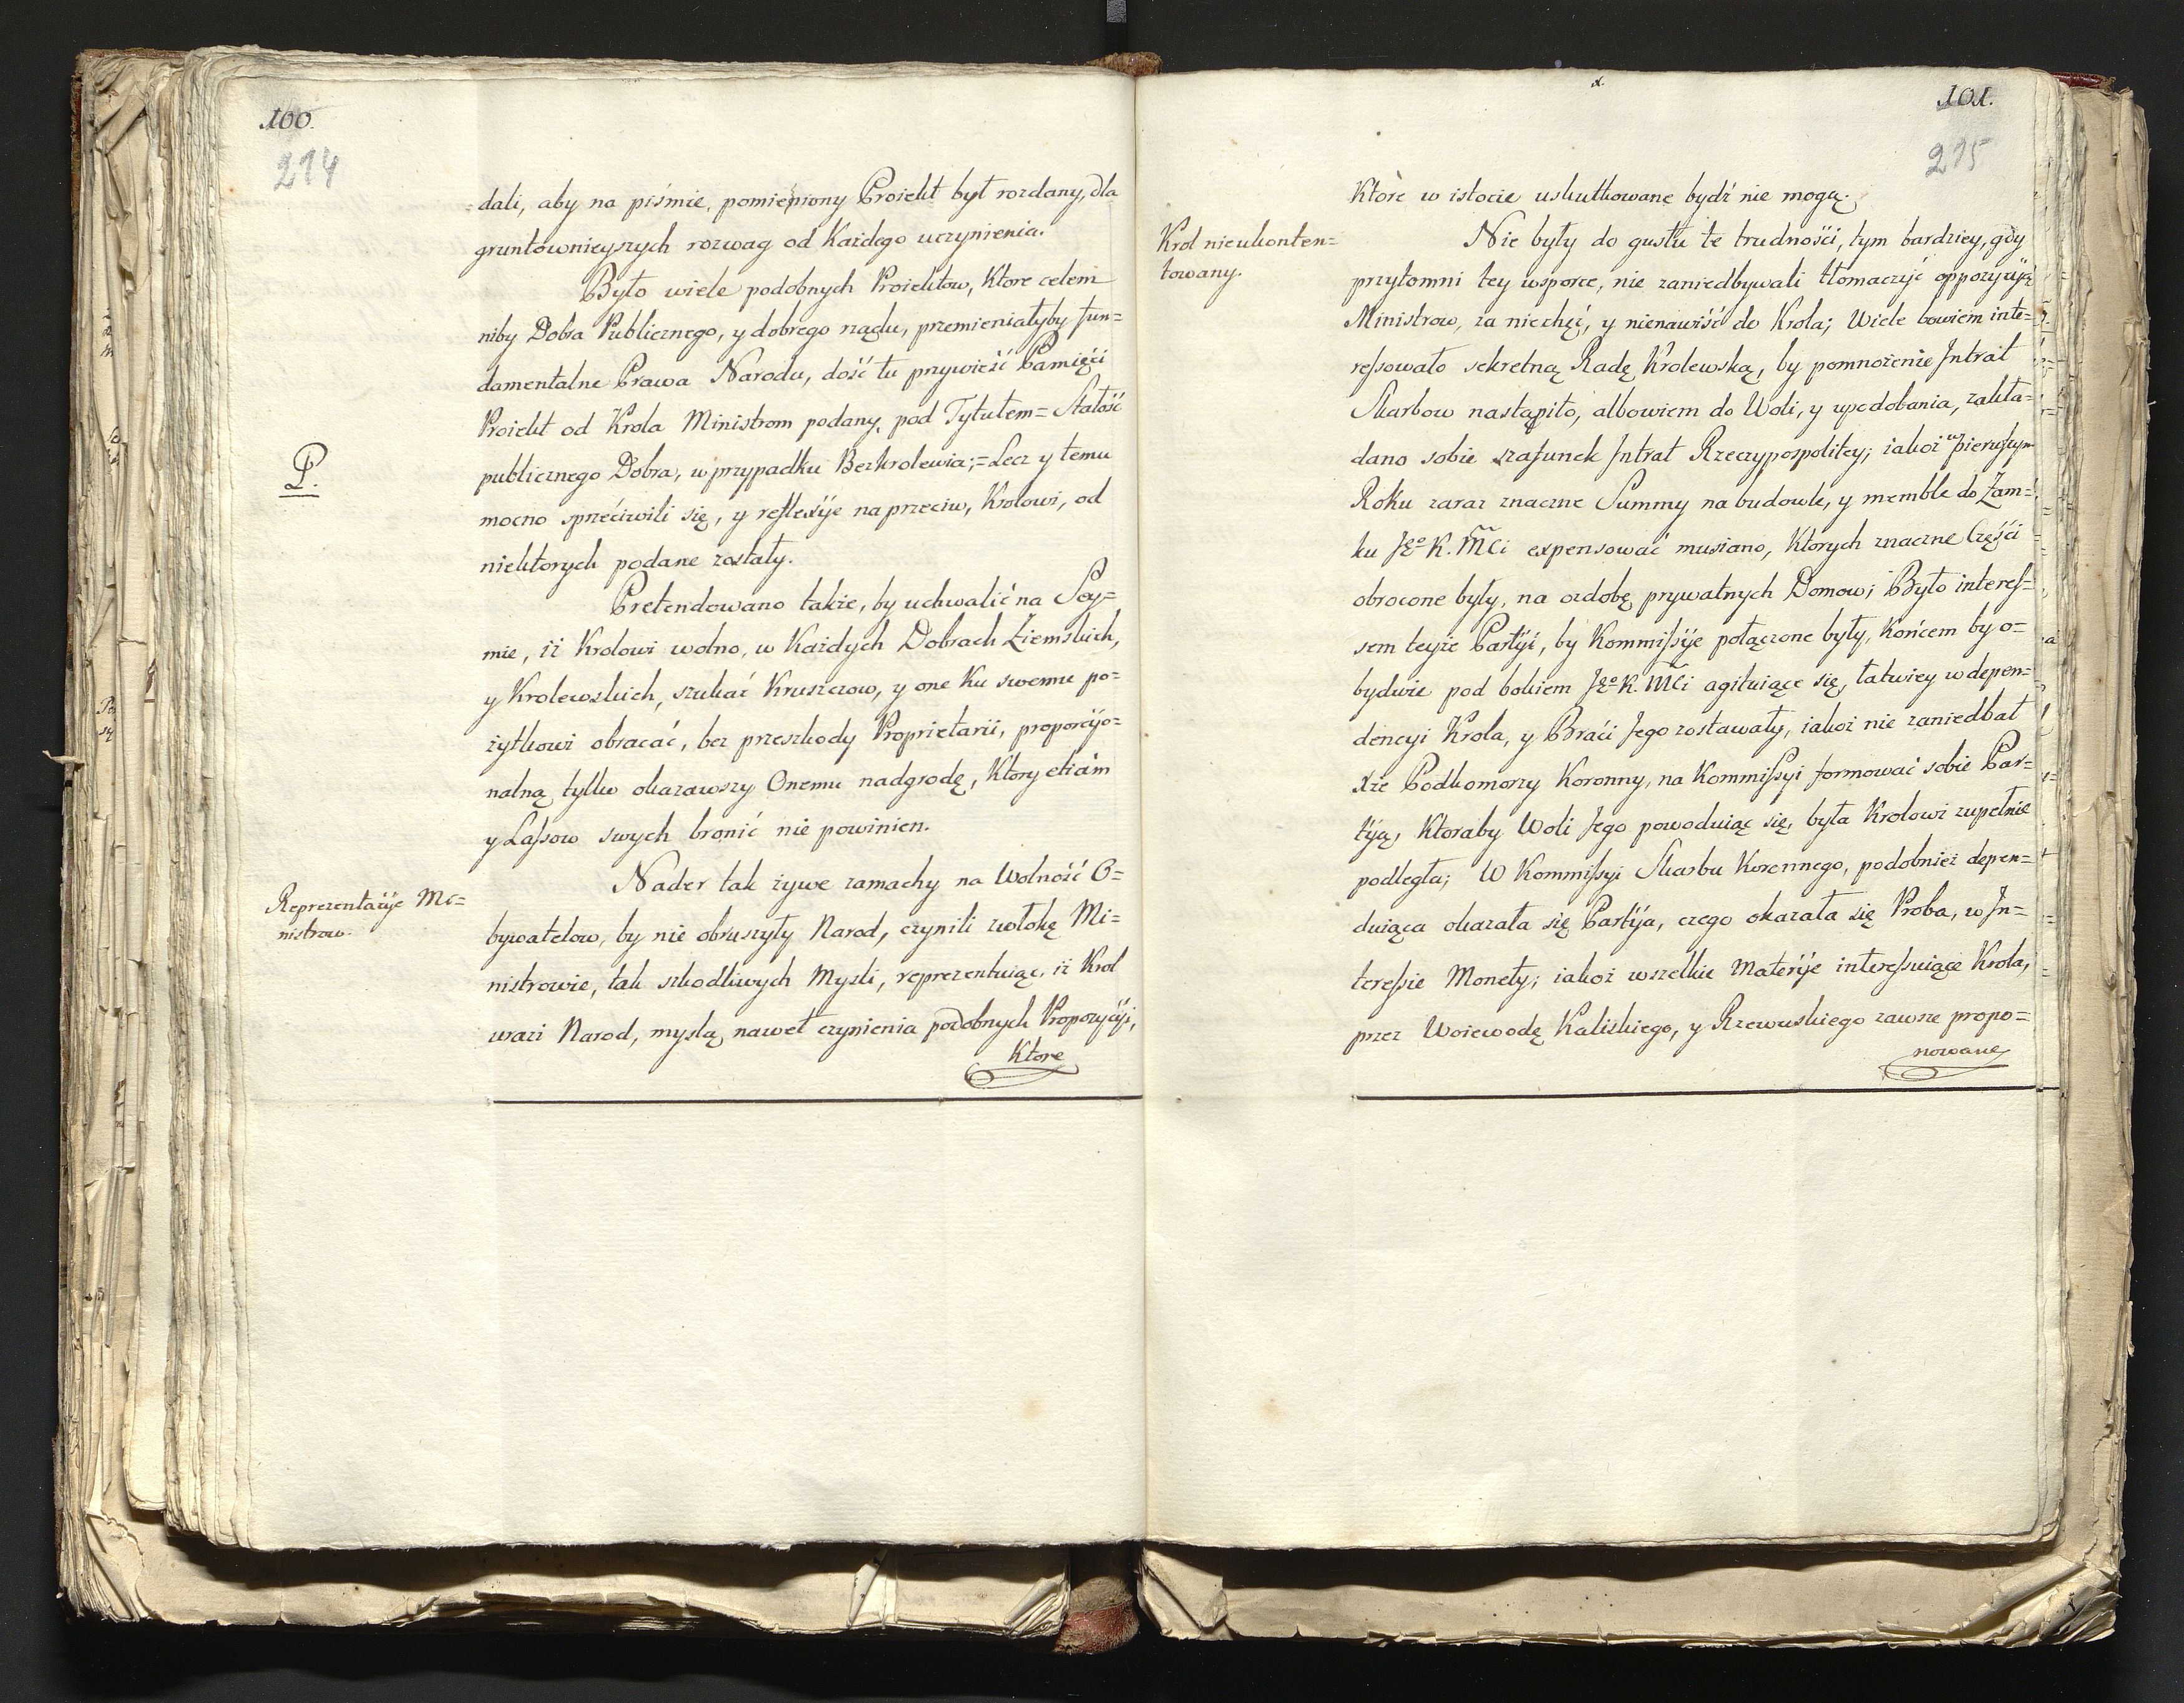 100.
214
dali, aby na piśmie, pomieniony Proiekt był rozdany, dla
gruntownieyszych rozwag od Każdego uczynienia.
Było wiele podobnych Proiektow, Ktore celem
niby Dobra Publicznego, y dobrego rządu, przemieniałyby fun=
damentalne Prawa Narodu, dość tu przywieść Pamięći
Proiekt od Krola Ministrom podany, pod Tytułem= Stałość
P.
publicznego Dobra, w przypadku Bezkrolewia;= Lecz y temu
mocno sprzećiwili się, y reflexÿe naprzeciw, Krolowi, od
niektorych podane zostały.
Pretendowano także, by uchwalić na Sey=
mie, iż Krolowi wolno, w Każdych Dobrach Ziemskich,
y Krolewskich, szukać Kruszcow, y one Ku swemu po=
żytkowi obracać, bez przeszkody Proprietarii, proporcÿo=
nalną tylko okazawszy Onemu nadgrodę, Ktory etiam
y Lassow swych bronić nie powinien.
Reprezentacÿe Mi=
nistrow.
Nader tak żywe zamachy na Wolność O=
bywatelow, by nie obruszyły Narod, czynili zwłokę Mi=
nistrowie, tak szkodliwych Mysli, reprezentuiąc, iż Krol
urazi Narod, myslą nawet czynienia podobnych Propozycÿi,
Ktore
101.
215
Ktore w istocie uskutkowane bydź nie mogą.
Krol nieukonten=
towany.
Nie były do gustu te trudnośći, tym bardziey, gdy
przytomni tey wsporce, nie zaniedbywali tłomaczyć oppozycÿą
Ministrow, za niechęć, y nienawiść do Krola; Wiele bowiem inte=
ressowało sekretną Radę Krolewską, by pomnożenie Intrat
Skarbow nastąpiło, albowiem do Woli, y upodobania, zakła=
dano sobie szafunek Intrat Rzeczypospolitey; iakoż w pierwszym
Roku zaraz znaczne Summy na budowle, y memble do Zam=
ku Jego K. Mci expensować musiano, Ktorych znaczne Częśći
obrocone były, na ozdobę prywatnych Domow; Było interes=
sem teyże Partÿi, by Kommissÿe połączone były, końcem by o=
bydwie pod bokiem Jego K. Mci agituiące się, łatwiey w depen=
dencyi Krola, y Braći Jego zostawały, iakoż nie zaniedbał
Xże Podkomorzy Koronny, na Kommissyi formować sobie Par=
tÿą, Ktoraby Woli Jego powoduiąc się, była Krolowi zupełnie
podległa; W Kommissyi Skarbu Koronnego, podobnież depen=
duiąca okazała się Partÿa, czego okazała się Proba, w In=
teressie Monety; iakoż wszelkie Materÿe interessuiące Krola,
przez Woiewodę Kaliskiego, y Rzewuskiego zawsze propo=
nowane